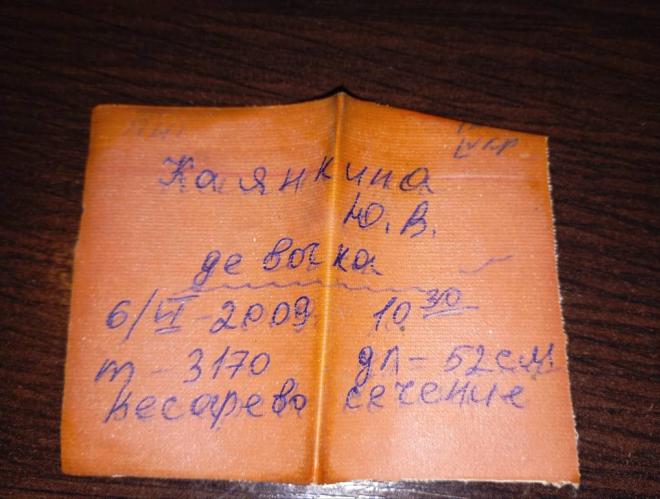 Каянкина
Ю. В.
девочка
6/VI - 2009 10 30
m - 3170 дл - 52 см.
кесарево сечение